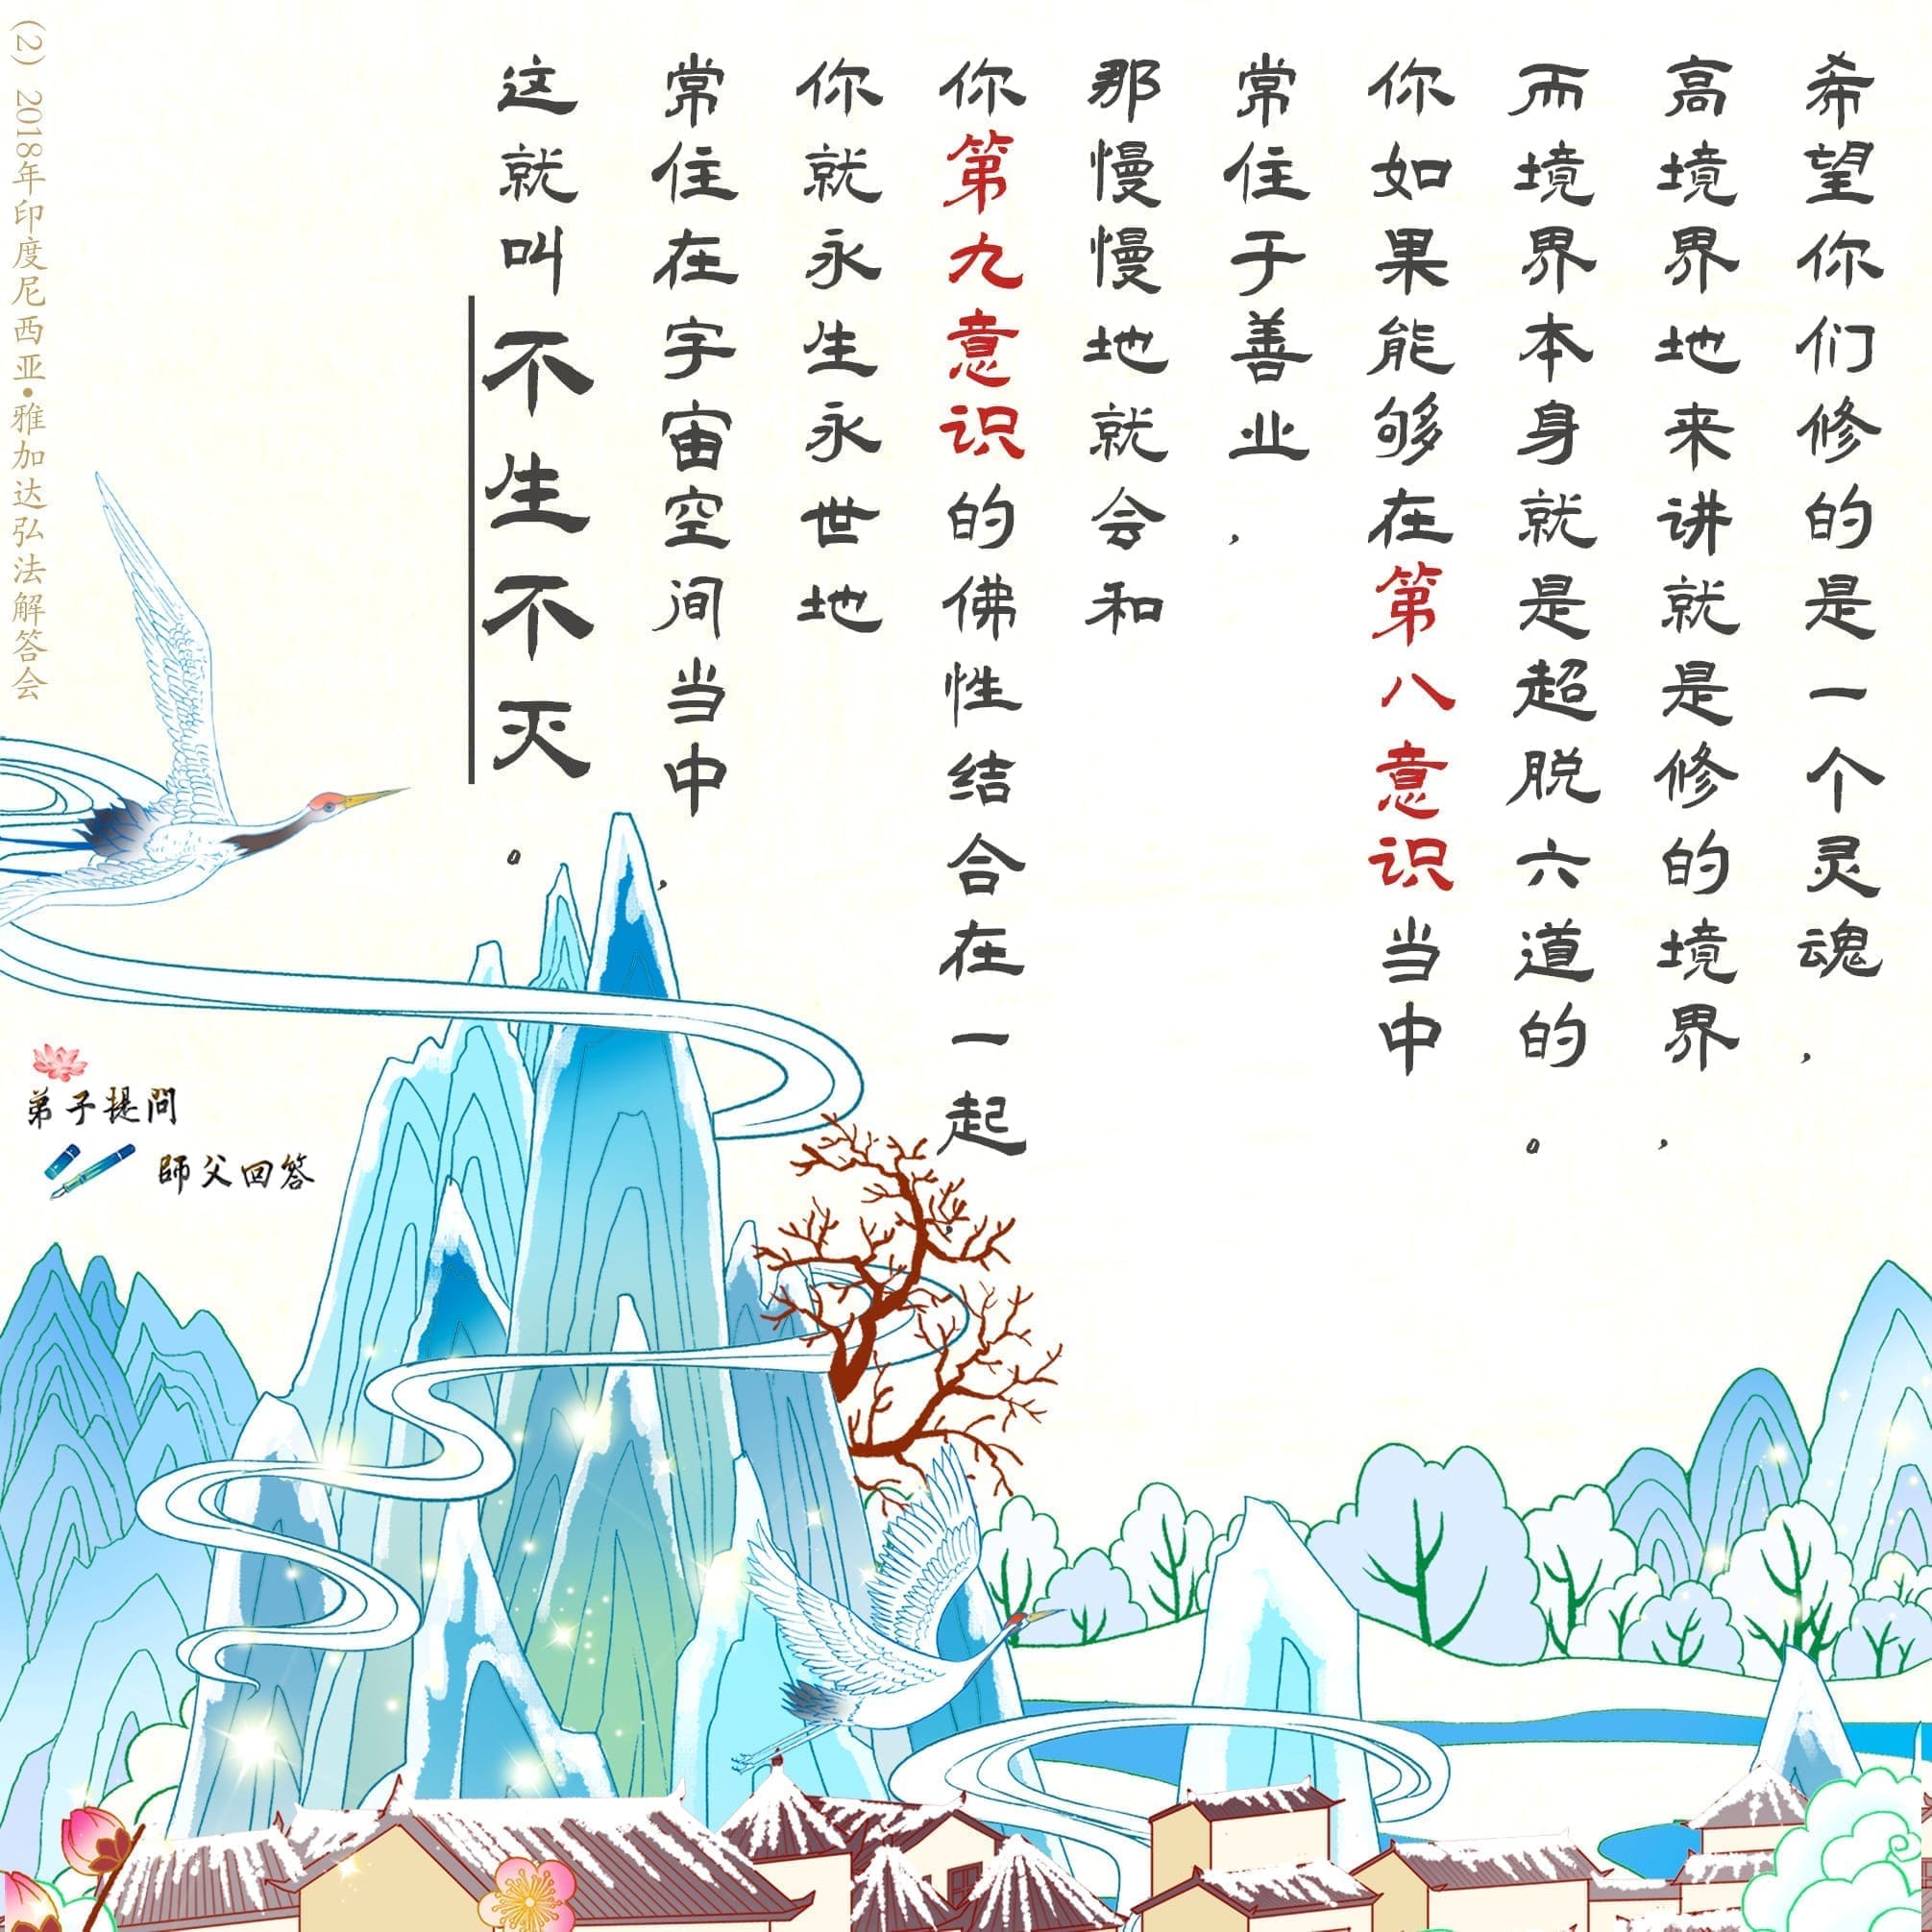 希望你们修的是一个灵魂，
高境界地来讲就是修的境界，
而境界本身就是超脱六道的。
你如果能够在第八意识当中
常住于善业，
那慢慢地就会和
你第九意识的佛性结合在一起，
你就永生永世地
常住在宇宙空间当中，
这就叫不生不灭。
（2）2018年印度尼西亚•雅加达弘法解答会
弟子提問
師父回答